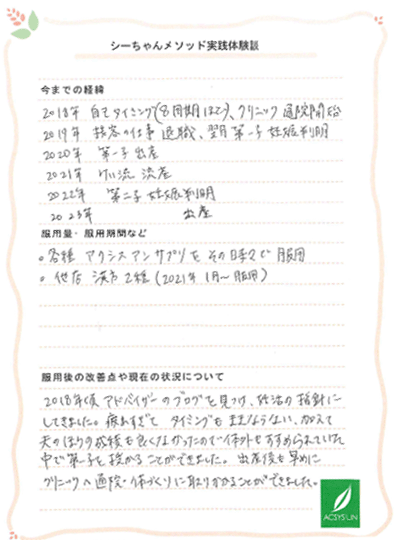 シーちゃんメソッド実践体験談
今までの経緯
2018年 自己タイミング(8周期ほど)、クリニック通院開始
2019年 接客の仕事 退職、翌月 第一子妊娠判明
2020年 第一子 出産
2021年 けい流 流産
2022年 第二子 妊娠判明
2023年 出産
服用量・服用期間など
• 各種 アクシスアンサプリを その時々で 服用
• 他店 漢方2種(2021年1月〜服用)
服用後の改善点や現在の状況について
2018年頃 アドバイザーのブログを見つけ、妊活の指針に
してきました。疲れすぎて タイミングも ままならない、加えて
夫のほうの成績も良くなかったので体外もすすめられていた
中で第一子を授かることができました。出産後も早めに
クリニックへ通院・体づくりに取りかかることができました。
ACSYS'UN